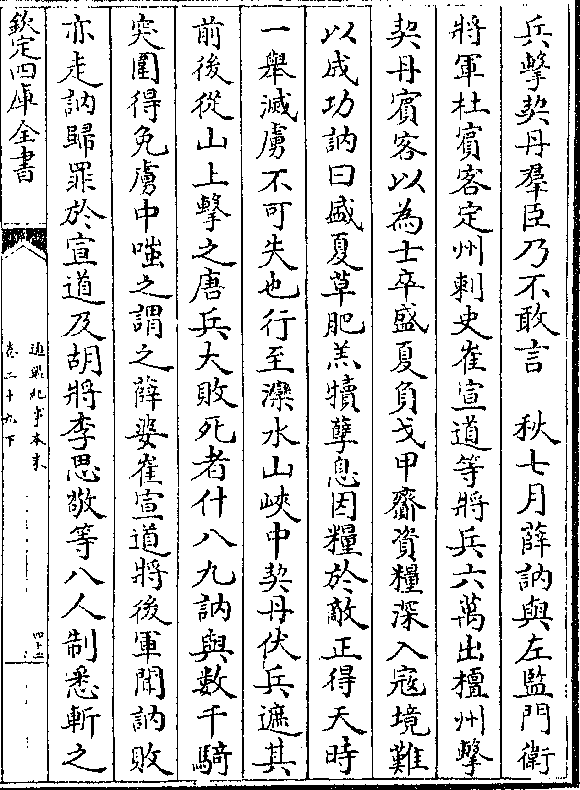 兵擊契丹羣臣乃不敢言　秋七月薛訥與左監門衛
將軍杜賓客定州刺史崔宣道等將兵六萬出檀州擊
契丹賓客以為士卒盛夏負戈甲齎資糧深入寇境難
以成功訥曰盛夏草肥羔犢孳息因糧於敵正得天時
一舉滅虜不可失也行至灤水山峽中契丹伏兵遮其
前後從山上擊之唐兵大敗死者什八九訥與數千騎
突圍得免虜中嗤之謂之薛婆崔宣道將後軍聞訥敗
亦走訥歸罪於宣道及胡將李思敬等八人制悉斬之
欽定四庫全書
通鑑紀事本末
卷二十九下
四十二